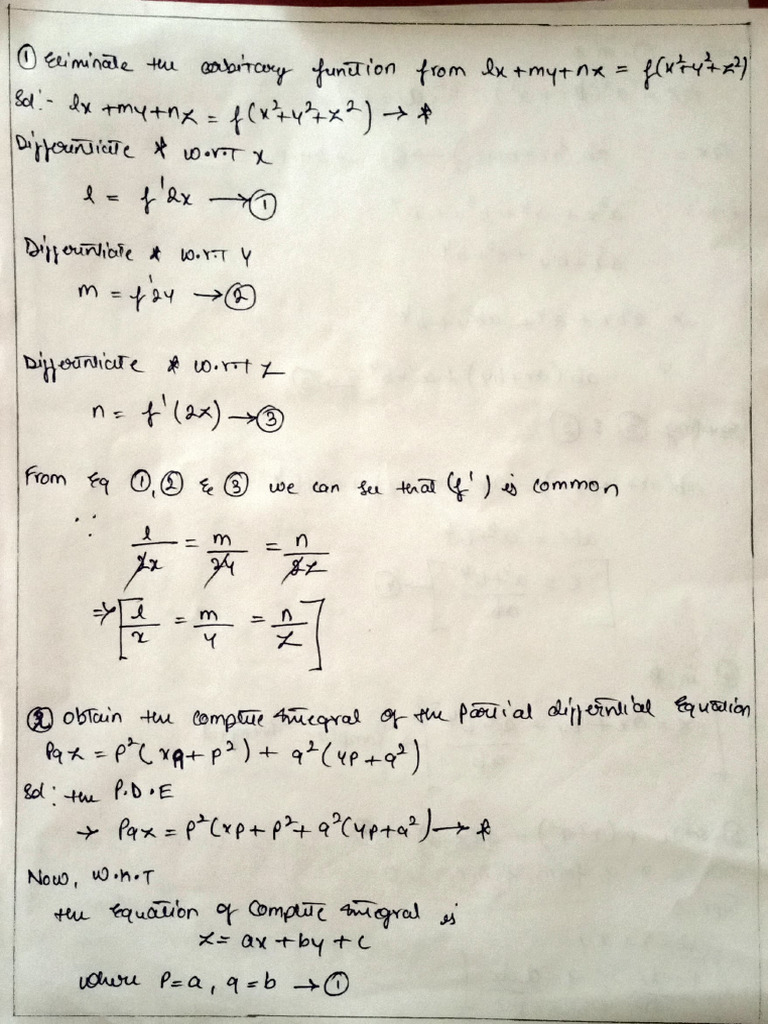 ① Eliminate the arbitrary function from lx+my+nx = f(x²+y²+z²)
Sol:- lx+my+nz = f(x²+y²+z²) → *
Differentiate * w.r.T x
l = f'2x → ①
Differentiate * w.r.T y
m = f'2y → ②
Differentiate * w.r.t z
n = f'(2x) → ③
From Eq ①,② & ③ we can see that (f') is common
∴ l/2x = m/2y = n/2z
⇒ [l/x = m/y = n/z]
② Obtain the complete Integral of the Partial differential Equation
Pqz = P²(xq+P²) + q²(yP+q²)
Sol: the P.D.E
→ Pqz = P²(xp+P²+q²(yp+q²) → *
Now, W.K.T
the Equation of Complete Integral is
z = ax+by+c
where P=a, q=b → ①